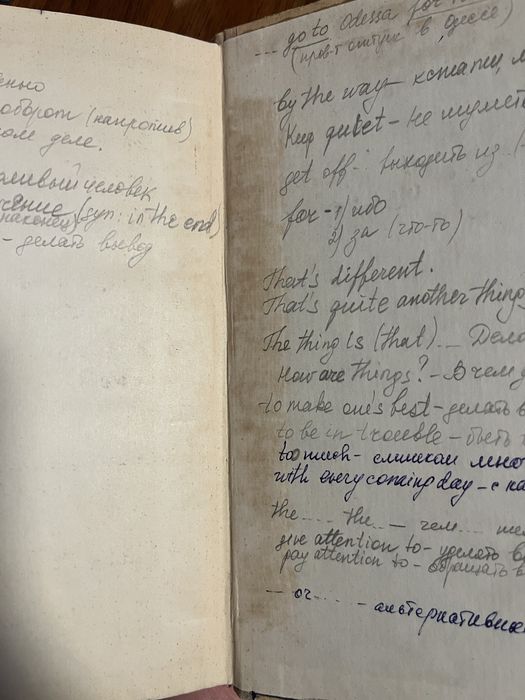 оборот (напротив)
деле.
человек
(syn: in the end)
наконец)
- делать вывод
--- go to Odessa for
в Одессе)
by the way - кстати,
Keep quiet - не шуметь
get off - выходить из
for - 1) ибо
2) за (что-то)
That's different.
That's quite another thing
The thing is (that)... Дело
How are things? - В чем
to make one's best - делать
to be in trouble - быть
too much - слишком мно
with every coming day - с ка
the.... the.. - чем....
give attention to - уделять
pay attention to - обращать
-- or..... - альтернативн